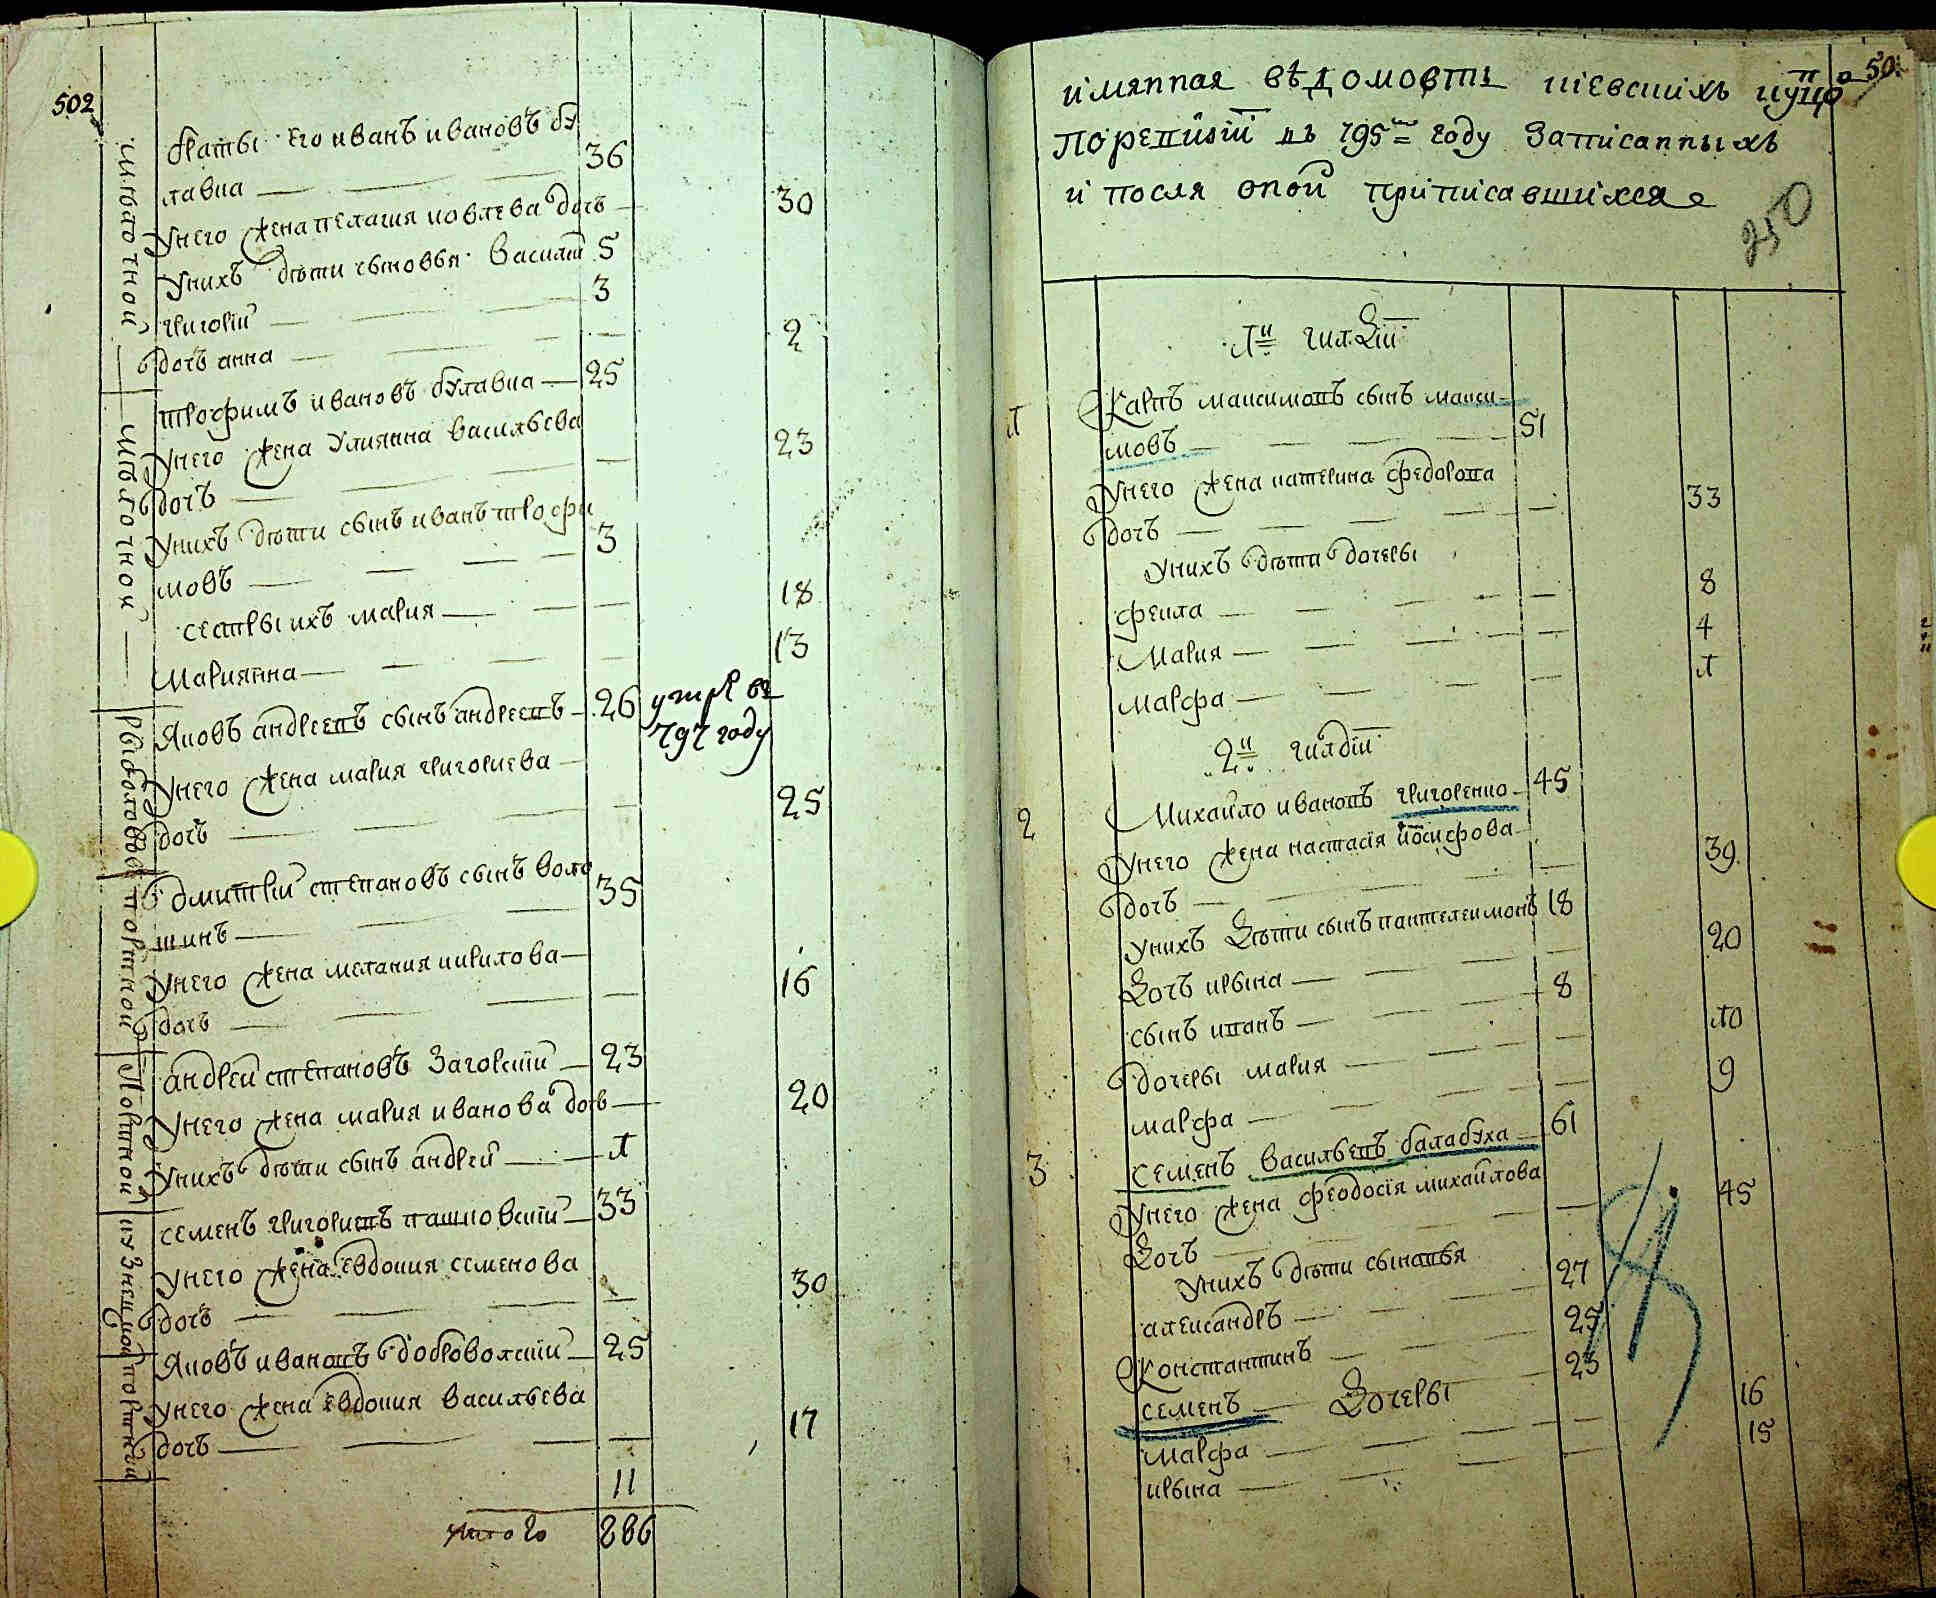 502
братъ его иванъ ивановъ бу
лавка 36
унего жена пелагия иовлева дочъ 30
унихъ дѣти сыновья василий 5
григорий 3
дочъ анна 2
трофимъ ивановъ булавка 25
унего жена улиянна васильева
дочъ 23
унихъ дѣти сынъ иванъ трофи
мовъ 3
сестры ихъ мария 18
мариянна 13
яковъ андреевъ сынъ андреевъ 26 умре въ
797 году
унего жена мария григориева
дочъ 25
дмитрий степановъ сынъ воло
шинъ 35
унего жена мелания кирилова
дочъ 16
андрей степановъ загорский 23
унего жена мария иванова дочъ 20
унихъ дѣти сынъ андрей 1
семенъ григориевъ пашковский 33
унего жена евдокия семенова
дочъ 30
яковъ ивановъ добровольский 25
унего жена евдокия васильева
дочъ 17
11
итого 286
рыболовъ
портной
портной
имянная вѣдомость киевскихъ купцо
поревизий въ 795м году записанныхъ
и после оной приписавшихся
250
1й гилдий
1 карпъ максимовъ сынъ макси
мовъ 51
унего жена катерина федорова
дочъ 33
унихъ дѣти дочеры
фекла 8
мария 4
марфа 1
2й гилдий
2 михайло ивановъ григоренко 45
унего жена настасія иосифова
дочъ 39
унихъ дѣти сынъ пантелеимонъ 18
дочъ ирына 20
сынъ иванъ 8
дочеры мария 10
марфа 9
3 семенъ васильевъ балабуха 61
унего жена феодосія михайлова
дочъ 45
унихъ дѣти сыновья
александръ 27
константинъ 25
семенъ 23
дочеры
марфа 16
ирына 15